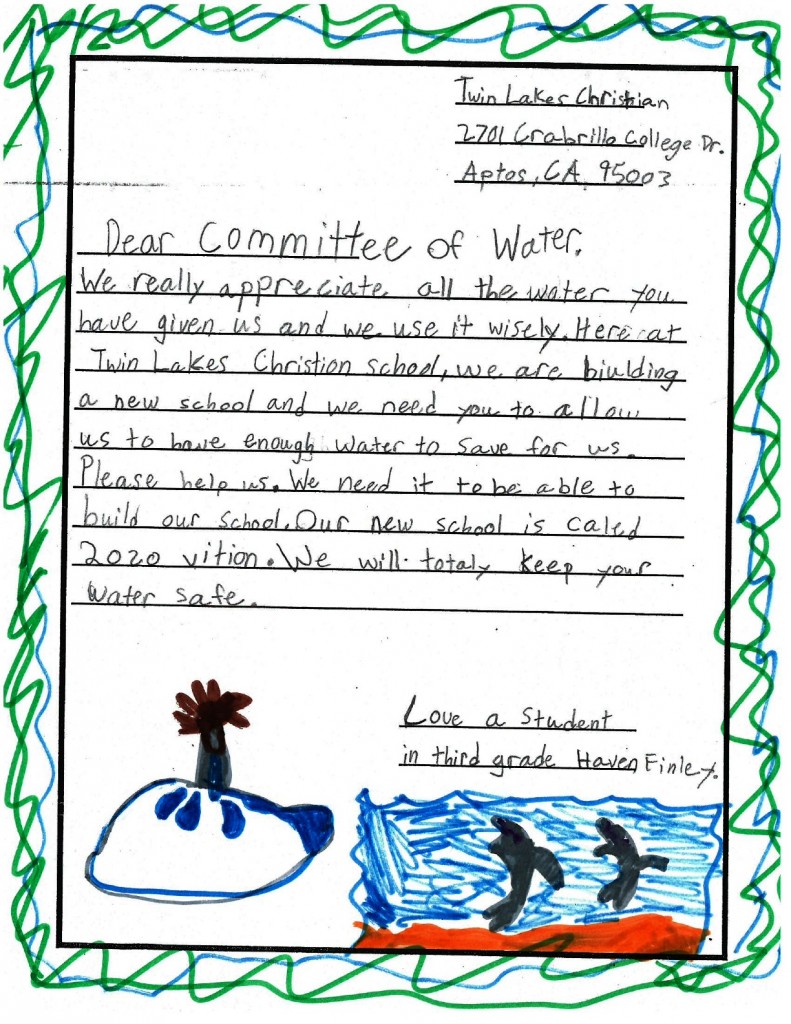 Twin Lakes Christian
2701 Crabrillo College Dr.
Aptos, CA 95003
Dear Committee of Water,
We really appreciate all the water you
have given us and we use it wisely. Here at
Twin Lakes Christion school, we are biulding
a new school and we need you to allow
us to have enough water to save for us.
Please help us. We need it to be able to
build our school. Our new school is caled
2020 vition. We will totaly keep your
water safe.
Love a Student
in third grade Haven Finley.